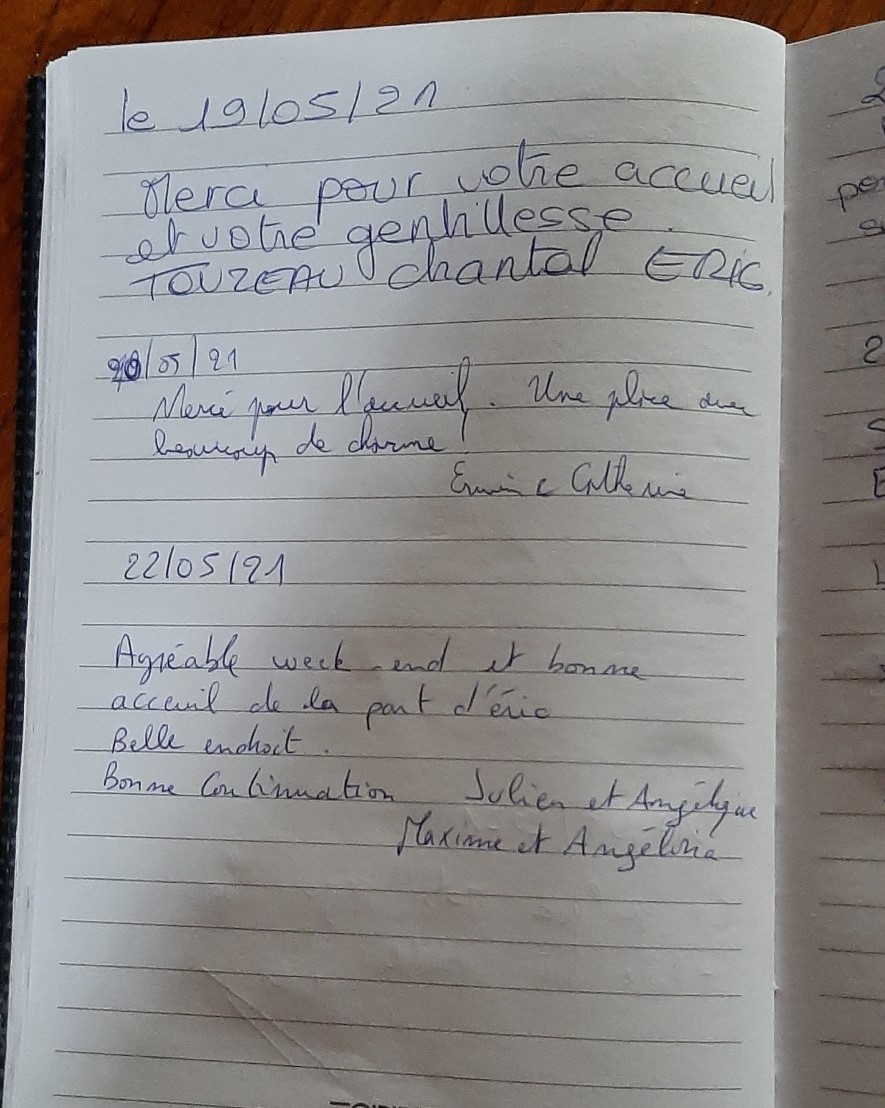 le 19/05/21
Merci pour votre accueil
et votre gentillesse.
TOUZEAU chantal ERIC.
20/05/21
Merci pour l'accueil. Une place avec
beaucoup de charme!
Erwin & Catherine
22/05/21
Agréable week-end et bonne
acceuil de la part d'éric
Belle endroit.
Bonne Continuation Julien et Angélique
Maxime et Angélina